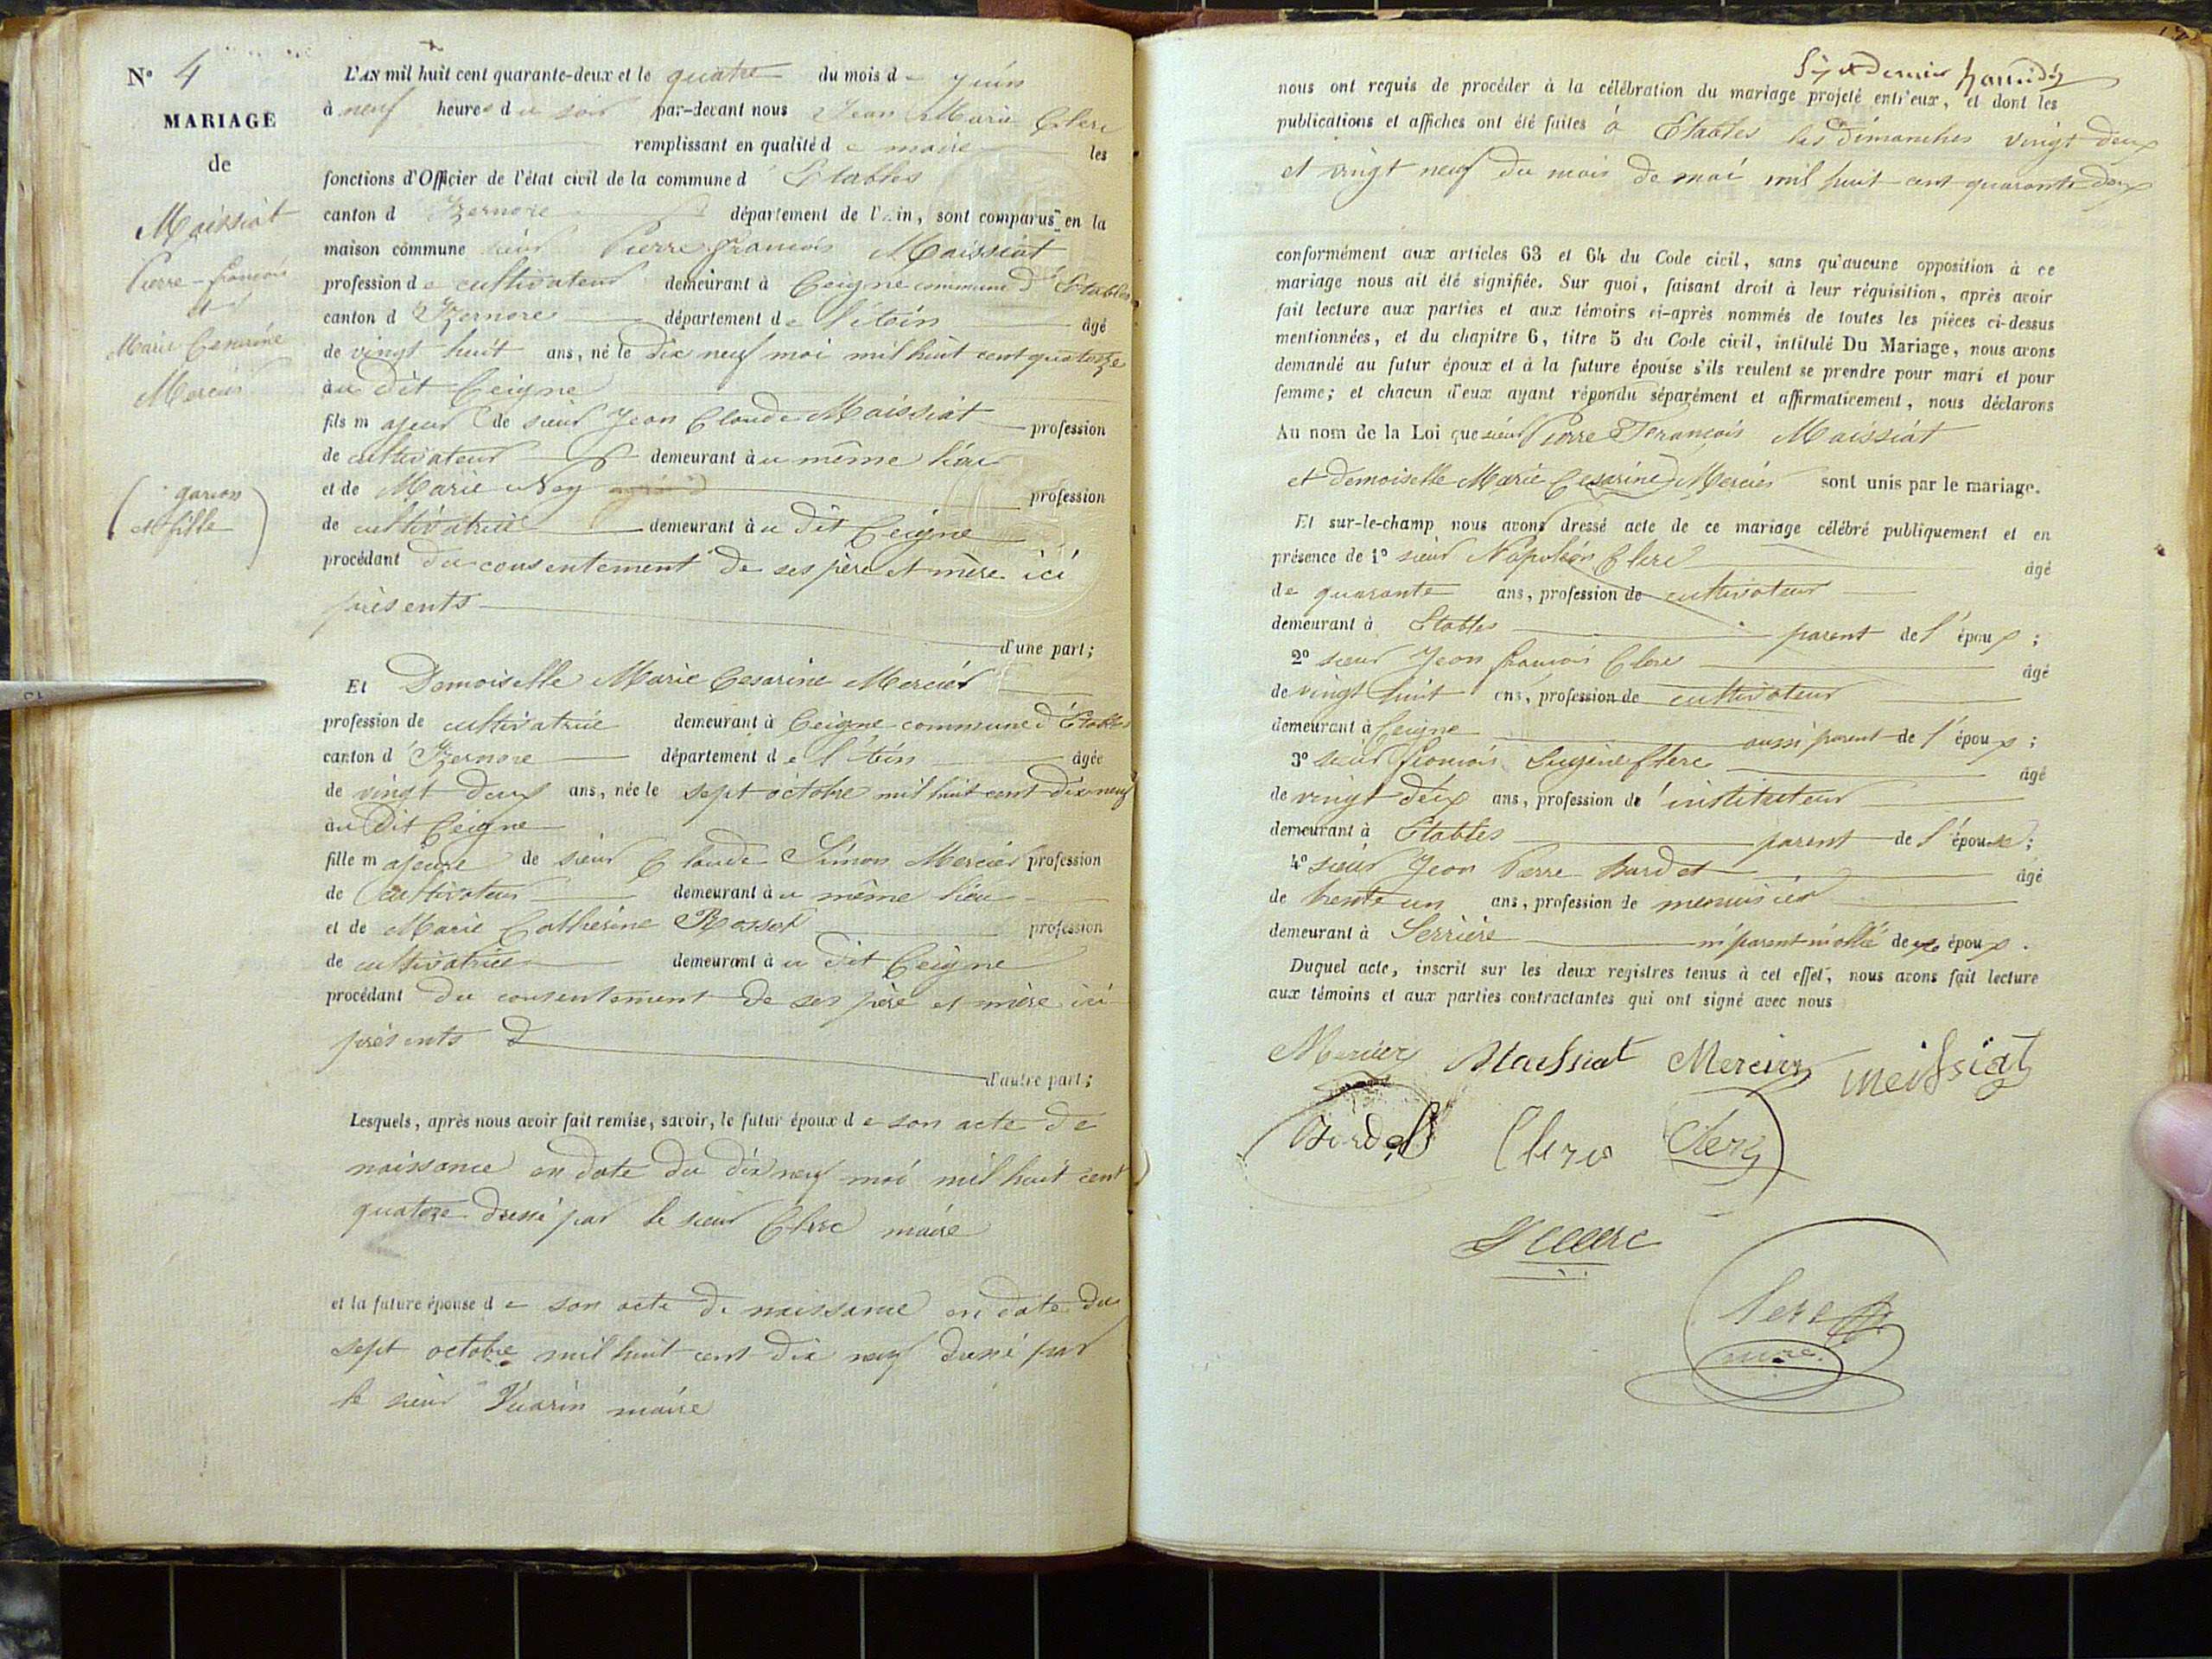 N° 4
MARIAGE
de
Maissiat
Pierre-françois
et
Marie Cesarine
Mercier
(garçon
et fille)
L'AN mil huit cent quarante-deux et le quatre du mois de Juin
à neuf heures du soir par-devant nous Jean Marie Clerc
remplissant en qualité de maire les
fonctions d'Officier de l'état civil de la commune d'Etables
canton d'Izernore département de l'Ain, sont comparus en la
maison commune sieur Pierre françois Maissiat
profession de cultivateur demeurant à Ceigne commune d'Etables
canton d'Izernore département de l'Ain âgé
de vingt huit ans, né le dix neuf mai mil huit cent quatorze
au dit Ceigne
fils majeur de sieur Jean Claude Maissiat profession
de cultivateur demeurant au même lieu
et de Marie profession
de cultivatrice demeurant au dit Ceigne
procédant du consentement de ses père et mère ici
présents
d'une part;
Et Demoiselle Marie Cesarine Mercier
profession de cultivatrice demeurant à Ceigne commune d'Etables
canton d'Izernore département de l'Ain âgée
de vingt deux ans, née le sept octobre mil huit cent dix neuf
au dit Ceigne
fille majeure de sieur Claude Simon Mercier profession
de Cultivateur demeurant au même lieu
et de Marie Catherine Rosset profession
de cultivatrice demeurant au dit Ceigne
procédant du consentement de ses père et mère ici
présents
d'autre part;
Lesquels, après nous avoir fait remise, savoir, le futur époux de son acte de
naissance en date du dix neuf mai mil huit cent
quatorze dressé par le sieur Clerc maire
et la future épouse de son acte de naissance en date du
sept octobre mil huit cent dix neuf dressé par
le sieur Vuarin maire
nous ont requis de procéder à la célébration du mariage projeté entr'eux, et dont les
publications et affiches ont été faites à Etables les dimanches vingt deux
et vingt neuf du mois de mai mil huit cent quarante deux
conformément aux articles 63 et 64 du Code civil, sans qu'aucune opposition à ce
mariage nous ait été signifiée. Sur quoi, faisant droit à leur réquisition, après avoir
fait lecture aux parties et aux témoins ci-après nommés de toutes les pièces ci-dessus
mentionnées, et du chapitre 6, titre 5 du Code civil, intitulé Du Mariage, nous avons
demandé au futur époux et à la future épouse s'ils veulent se prendre pour mari et pour
femme; et chacun d'eux ayant répondu séparément et affirmativement, nous déclarons
Au nom de la Loi que sieur Pierre François Maissiat
et demoiselle Marie Cesarine Mercier sont unis par le mariage.
Et sur-le-champ nous avons dressé acte de ce mariage célébré publiquement et en
présence de 1° sieur Napoléon Clerc âgé
de quarante ans, profession de cultivateur
demeurant à Etables parent de l'époux;
2° sieur Jean françois Clerc âgé
de vingt huit ans, profession de cultivateur
demeurant à Ceigne aussi parent de l'époux;
3° sieur françois Eugène Clerc âgé
de vingt deux ans, profession de instituteur
demeurant à Etables parent de l'épouse;
4° sieur Jean Pierre âgé
de trente un ans, profession de menuisier
demeurant à Serrière ni parent ni allié des époux.
Duquel acte, inscrit sur les deux registres tenus à cet effet, nous avons fait lecture
aux témoins et aux parties contractantes qui ont signé avec nous
Mercier Maissiat Mercier meissiat
Clerc Clerc
Clerc
Clerc
maire